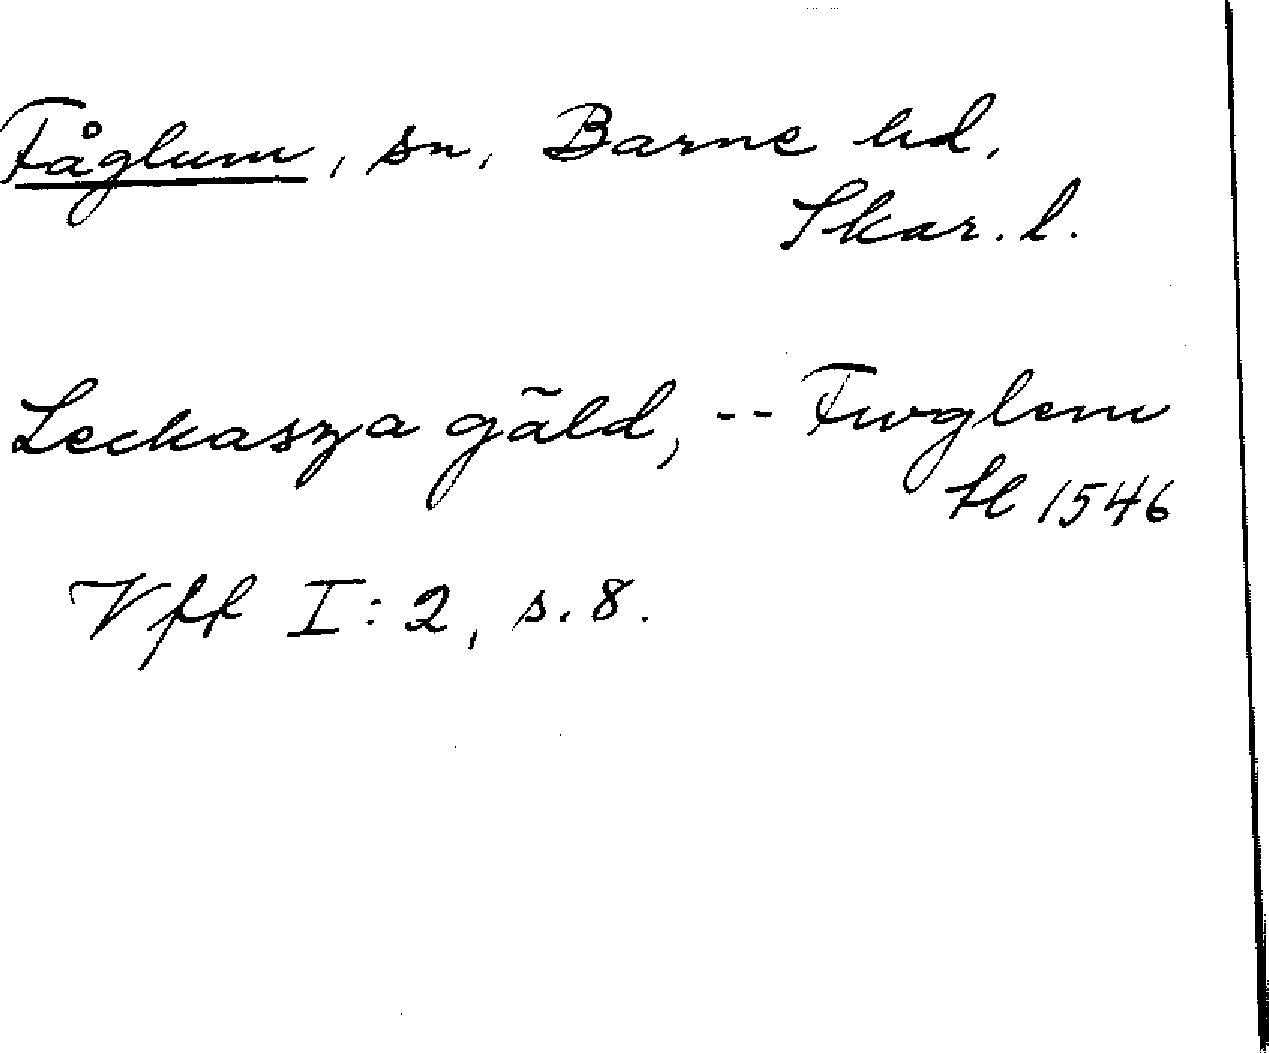 Fåglum, sn, Barne hd,
Skar. l.
Leckasza gäld, -- Fwglem
fl 1546
Vff I:2, s. 8.